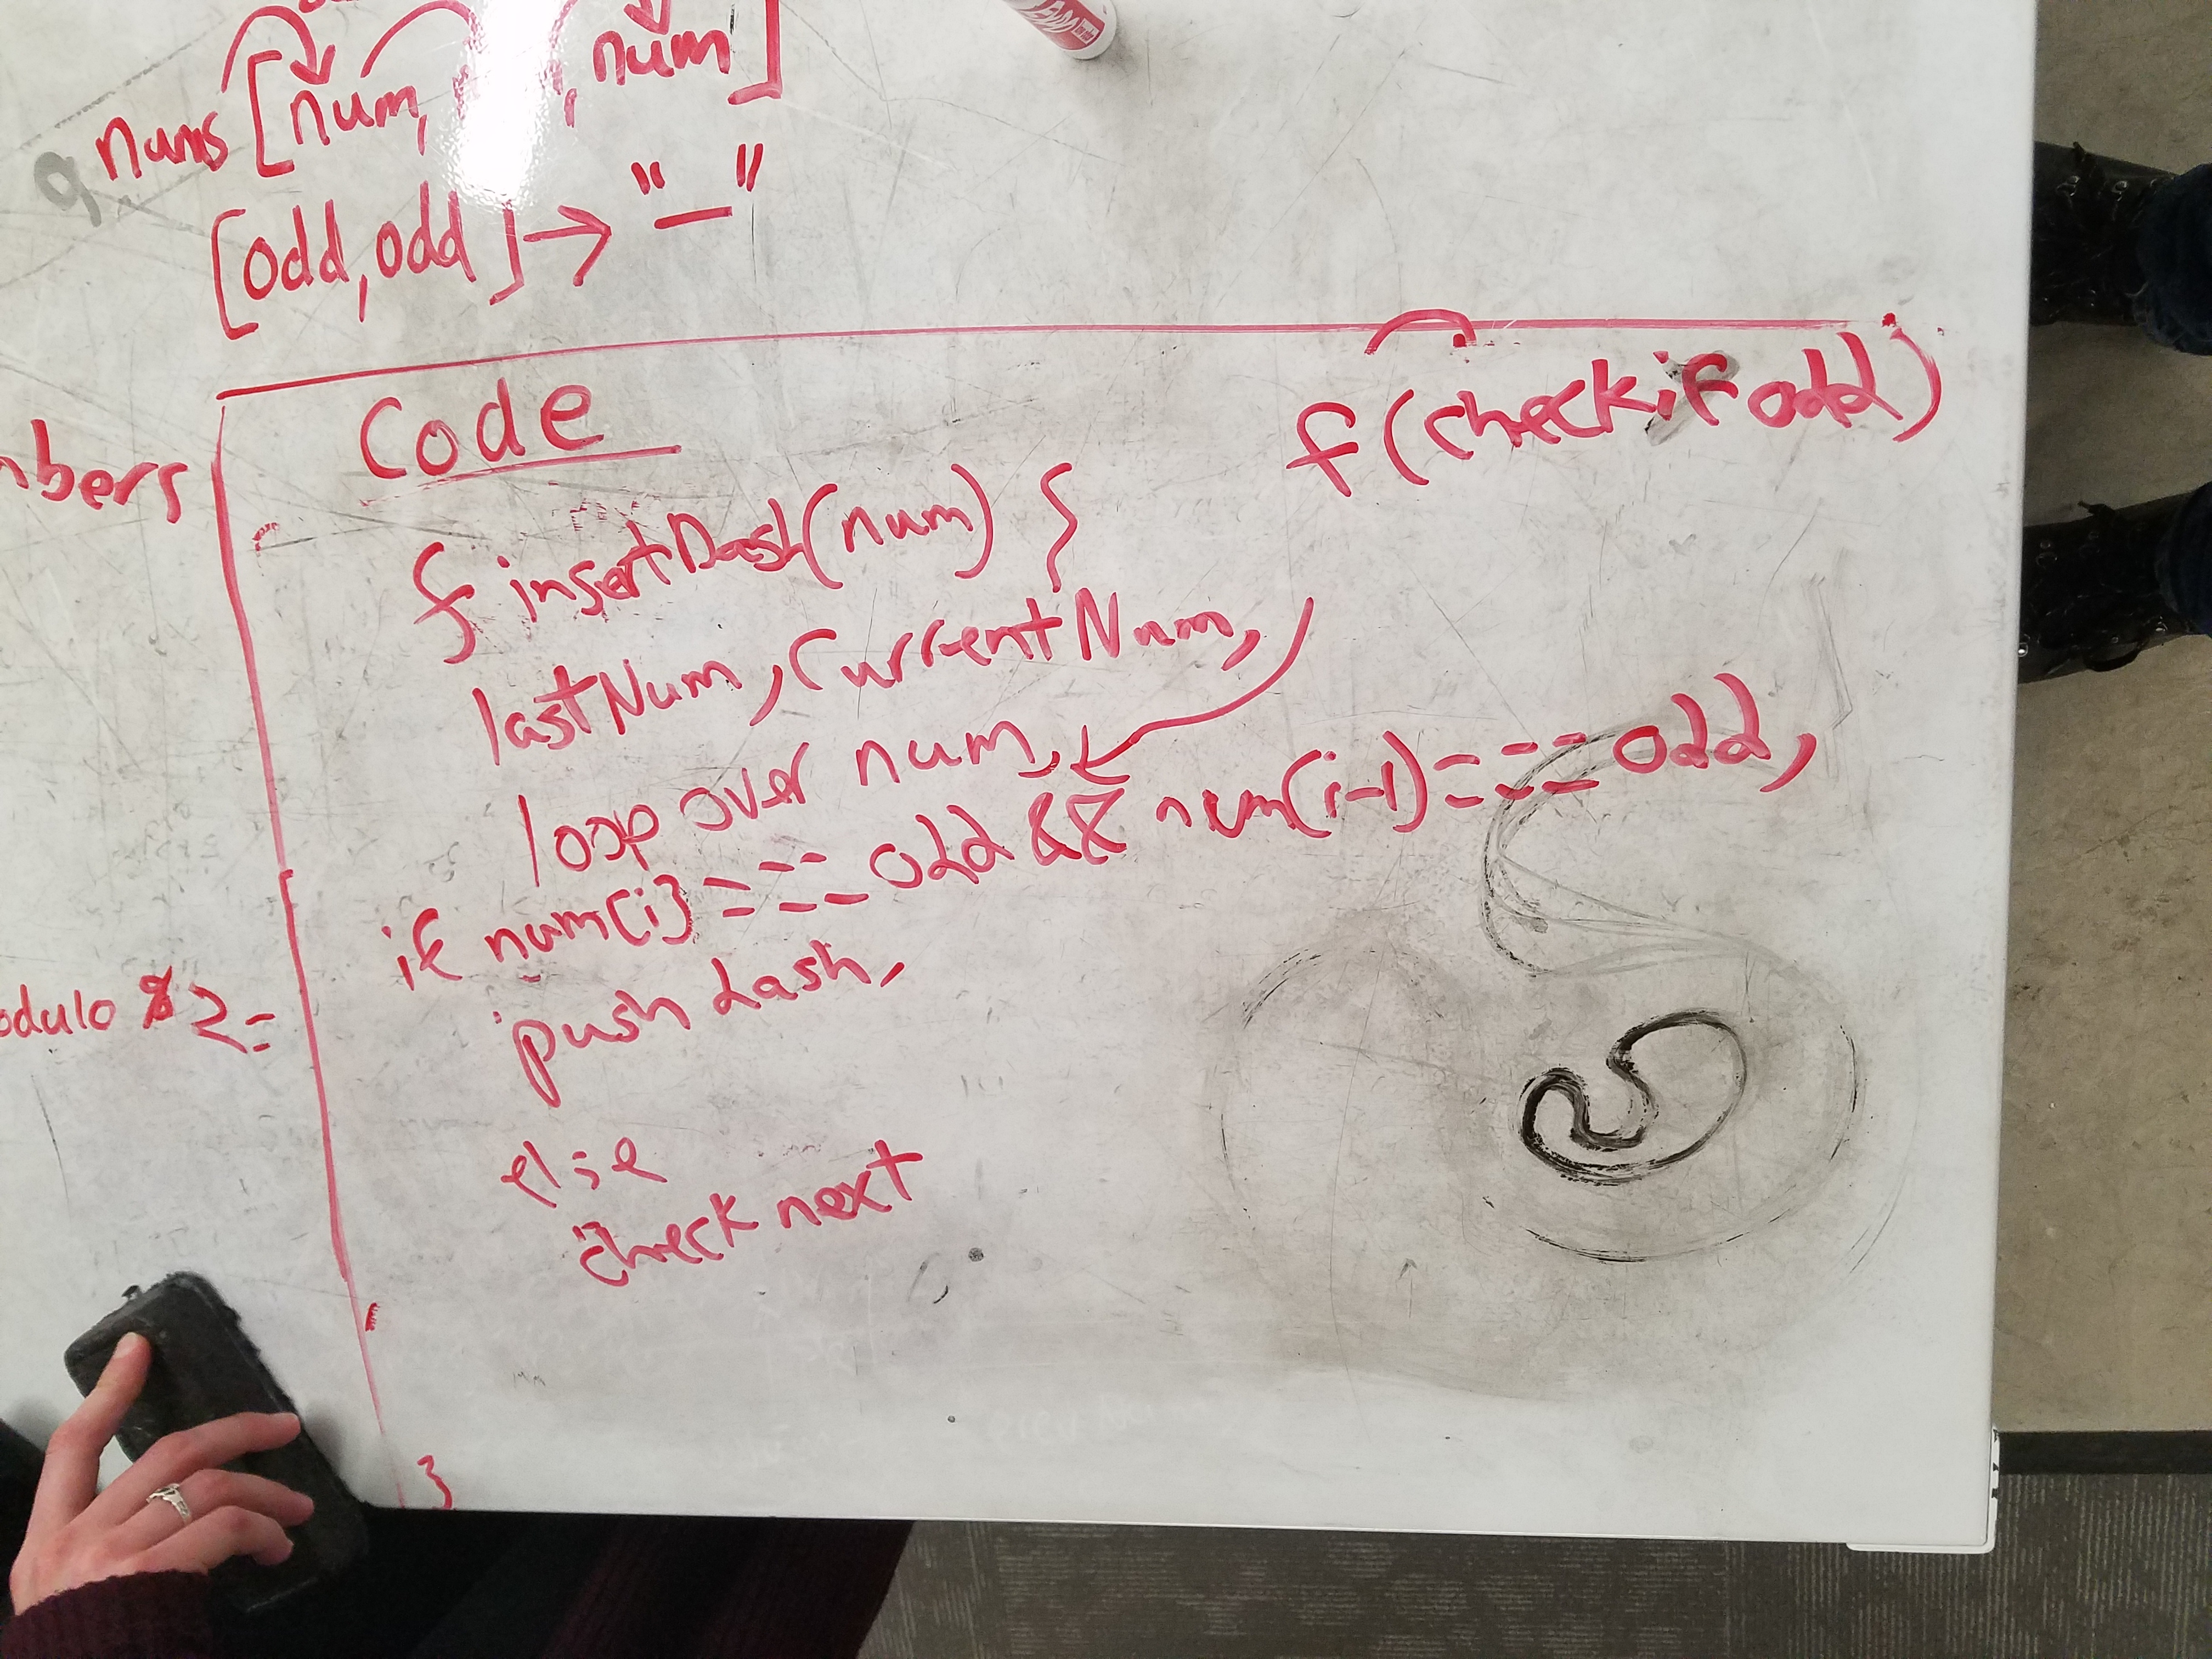 nums [num, , num]
[odd, odd] → "_"
mbers
Code
f(checkifodd)
f insertDash(num) {
lastNum, CurrentNum,
loop over num,
if num[i] === odd && num(i-1) === odd)
push dash.
else
check next
}
odulo % 2 =